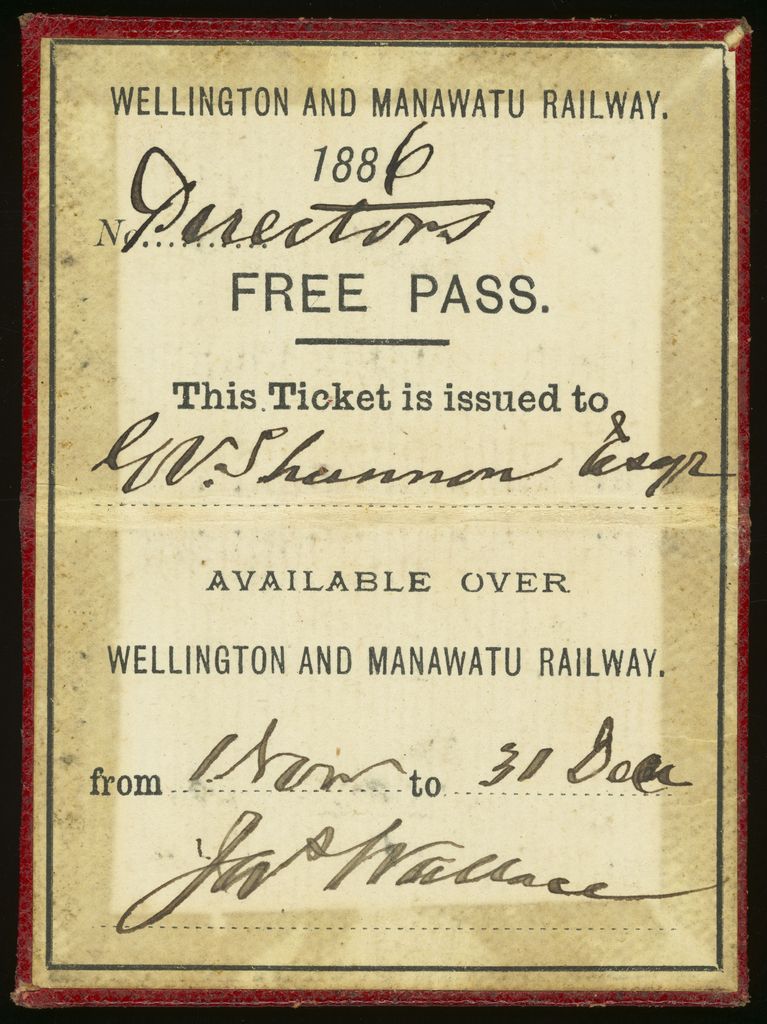 WELLINGTON AND MANAWATU RAILWAY.
1886
No. Directors
FREE PASS.
This Ticket is issued to
G.V. Shannon Esqr
AVAILABLE OVER
WELLINGTON AND MANAWATU RAILWAY.
from 1 Nov to 31 Dec
Jas Wallace